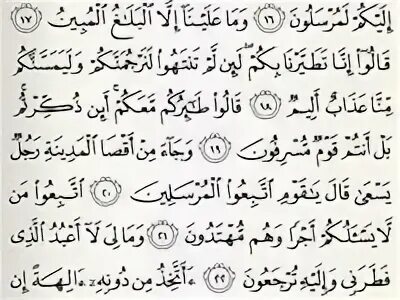 إِلَيْكُمْ لَمُرْسَلُونَ ١٦ وَمَا عَلَيْنَآ إِلَّا ٱلْبَلَٰغُ ٱلْمُبِينُ ١٧
قَالُوٓا۟ إِنَّا تَطَيَّرْنَا بِكُمْ ۖ لَئِن لَّمْ تَنتَهُوا۟ لَنَرْجُمَنَّكُمْ وَلَيَمَسَّنَّكُم
مِّنَّا عَذَابٌ أَلِيمٌ ١٨ قَالُوا۟ طَٰٓئِرُكُم مَّعَكُمْ ۚ أَئِن ذُكِّرْتُم ۚ
بَلْ أَنتُمْ قَوْمٌ مُّسْرِفُونَ ١٩ وَجَآءَ مِنْ أَقْصَا ٱلْمَدِينَةِ رَجُلٌ
يَسْعَىٰ قَالَ يَٰقَوْمِ ٱتَّبِعُوا۟ ٱلْمُرْسَلِينَ ٢٠ ٱتَّبِعُوا۟ مَن
لَّا يَسْـَٔلُكُمْ أَجْرًا وَهُم مُّهْتَدُونَ ٢١ وَمَا لِىَ لَآ أَعْبُدُ ٱلَّذِى
فَطَرَنِى وَإِلَيْهِ تُرْجَعُونَ ٢٢ ءَأَتَّخِذُ مِن دُونِهِۦٓ ءَالِهَةً إِن